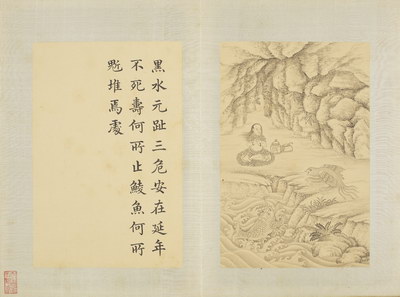 黑水元趾三危安在延年
不死壽何所止鯪魚何所
鬿堆焉處